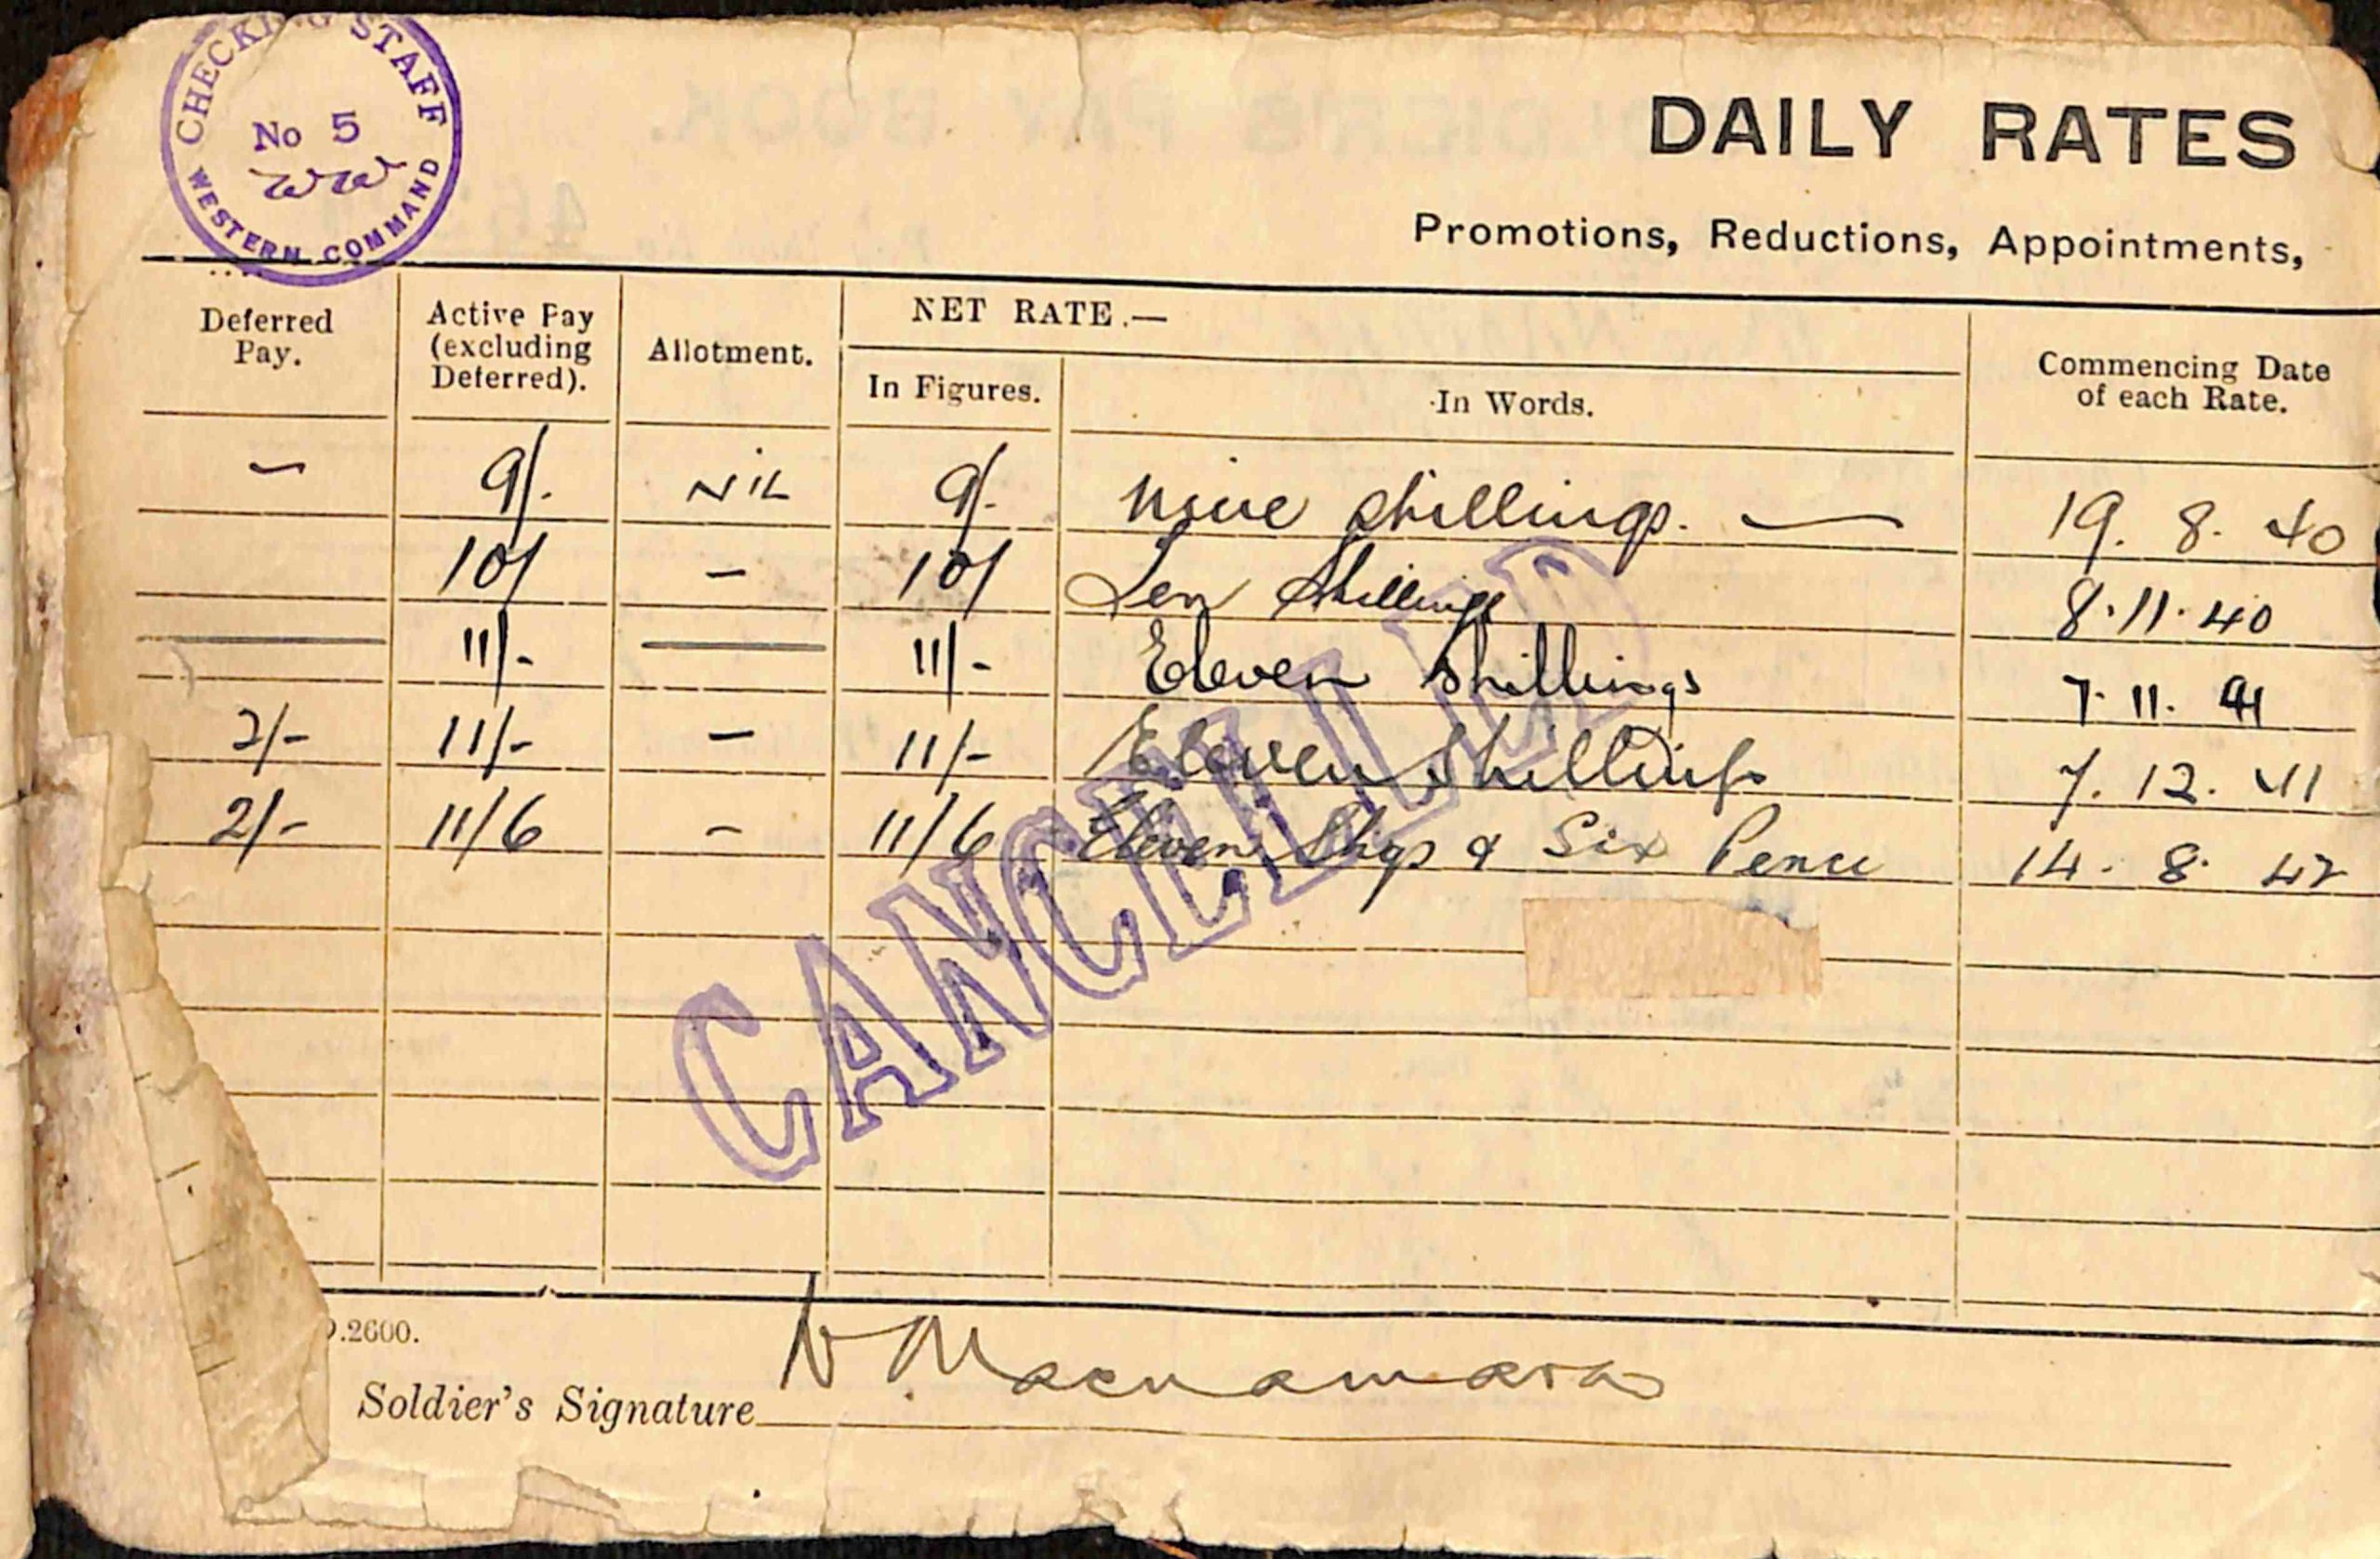 CHECKING STAFF
No 5
WESTERN COMMAND
DAILY RATES
Promotions, Reductions, Appointments,
Deferred Pay. Active Pay (excluding Deferred). Allotment. NET RATE.— In Figures. In Words. Commencing Date of each Rate.
– 9/- NIL 9/- nine shillings. — 19. 8. 40
10/ – 10/ Ten Shillings 8.11.40
— 11/- — 11/- Eleven Shillings 7.11.41
2/- 11/- – 11/- Eleven Shillings 7.12.41
2/- 11/6 – 11/6 Eleven Shgs & Six Pence 14. 8. 42
CANCELLED
.2600.
Soldier's Signature N Macnamara